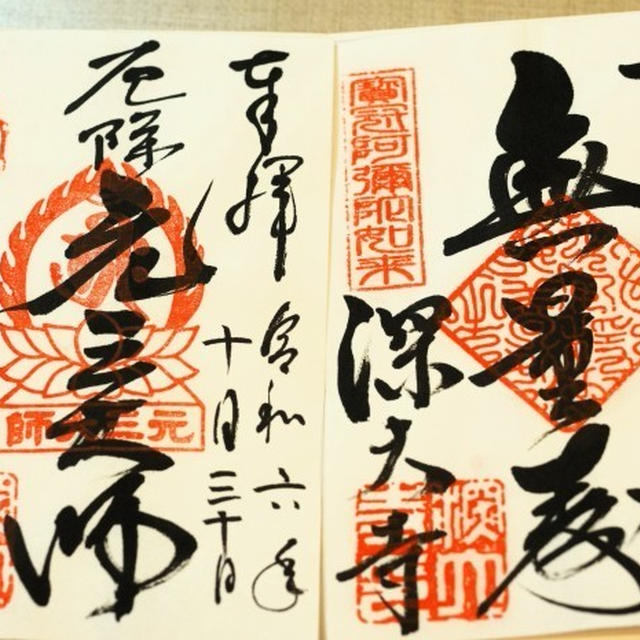 無量壽
寶冠阿彌陀如来
深大寺
深大寺
奉拝
令和六年
十月三十日
厄除
元三大師
元三大師